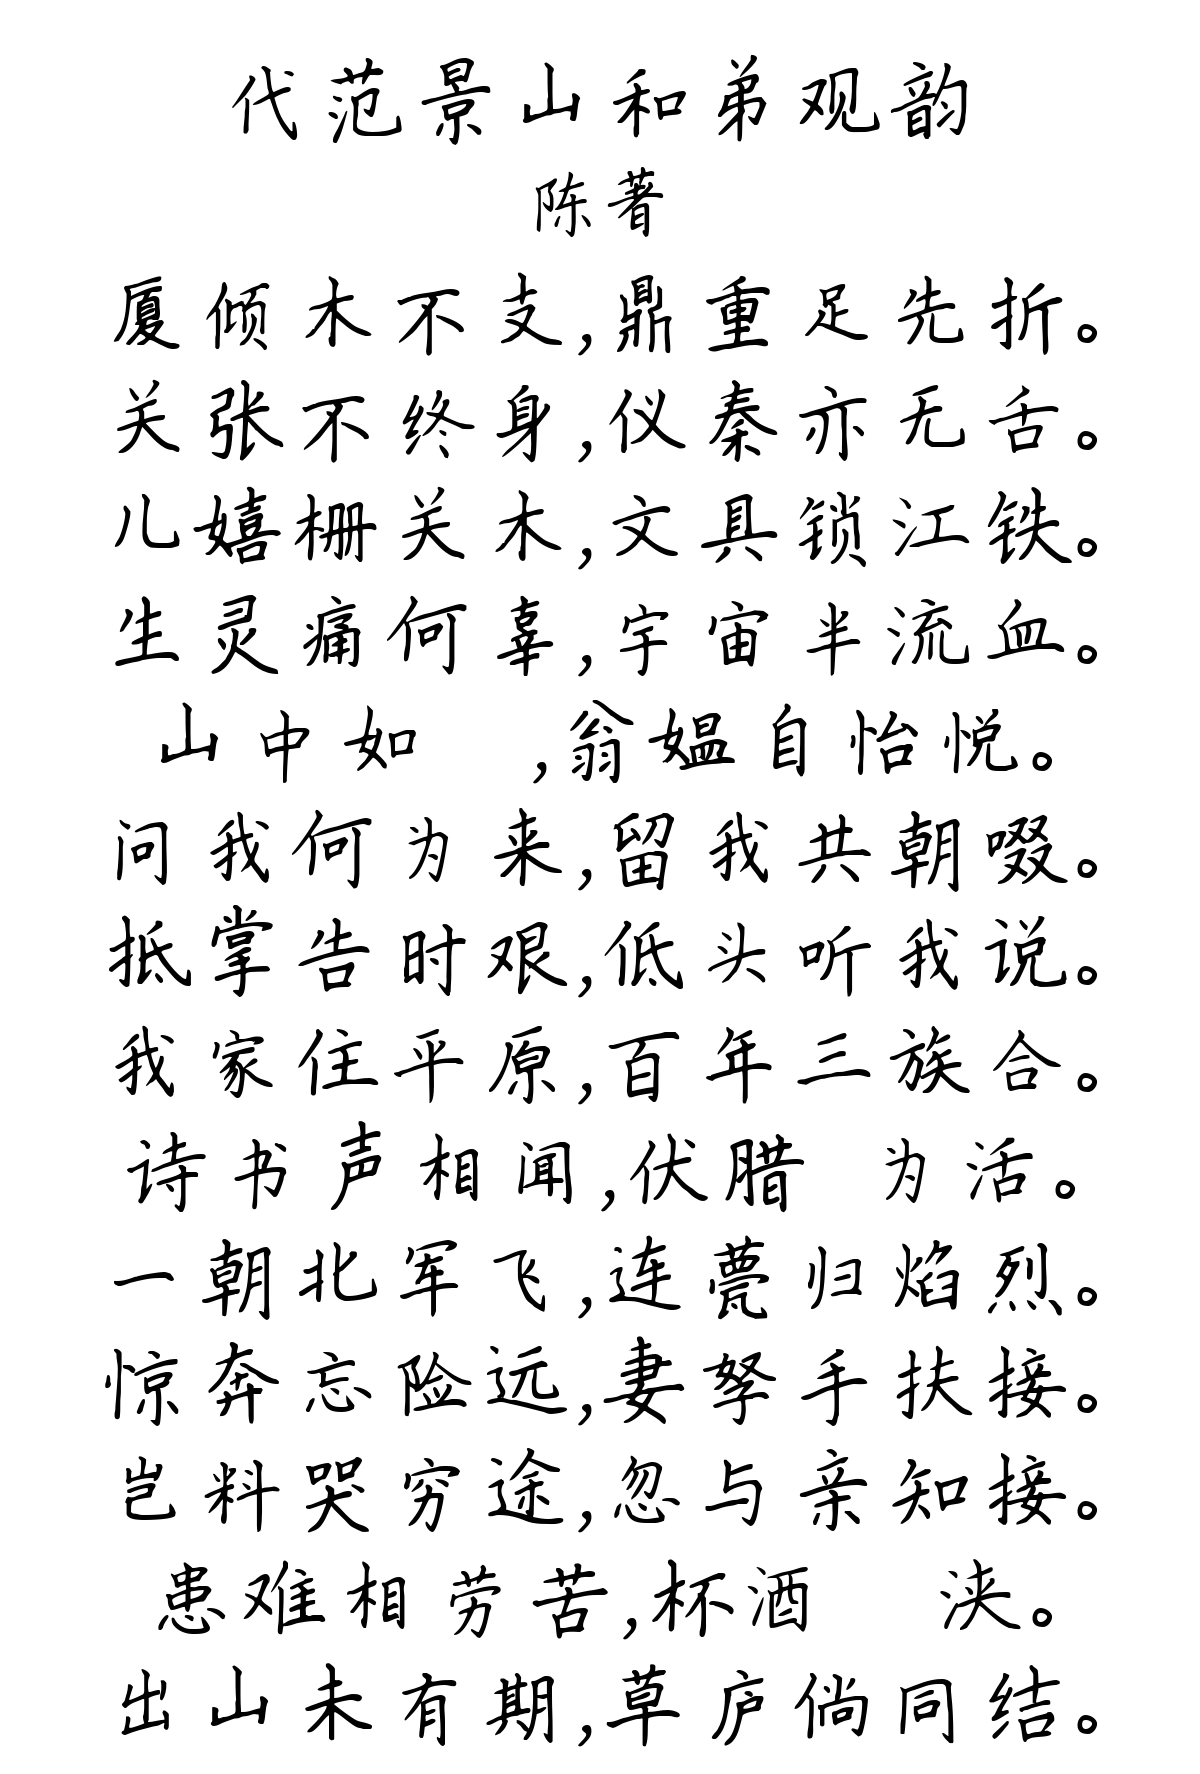 代范景山和弟观韵
陈著
厦倾木不支,鼎重足先折。
关张不终身,仪秦亦无舌。
儿嬉栅关木,文具锁江铁。
生灵痛何辜,宇宙半流血。
山中如 ,翁媪自怡悦。
问我何为来,留我共朝啜。
抵掌告时艰,低头听我说。
我家住平原,百年三族合。
诗书声相闻,伏腊 为活。
一朝北军飞,连甍归焰烈。
惊奔忘险远,妻孥手扶接。
岂料哭穷途,忽与亲知接。
患难相劳苦,杯酒 浃。
出山未有期,草庐倘同结。